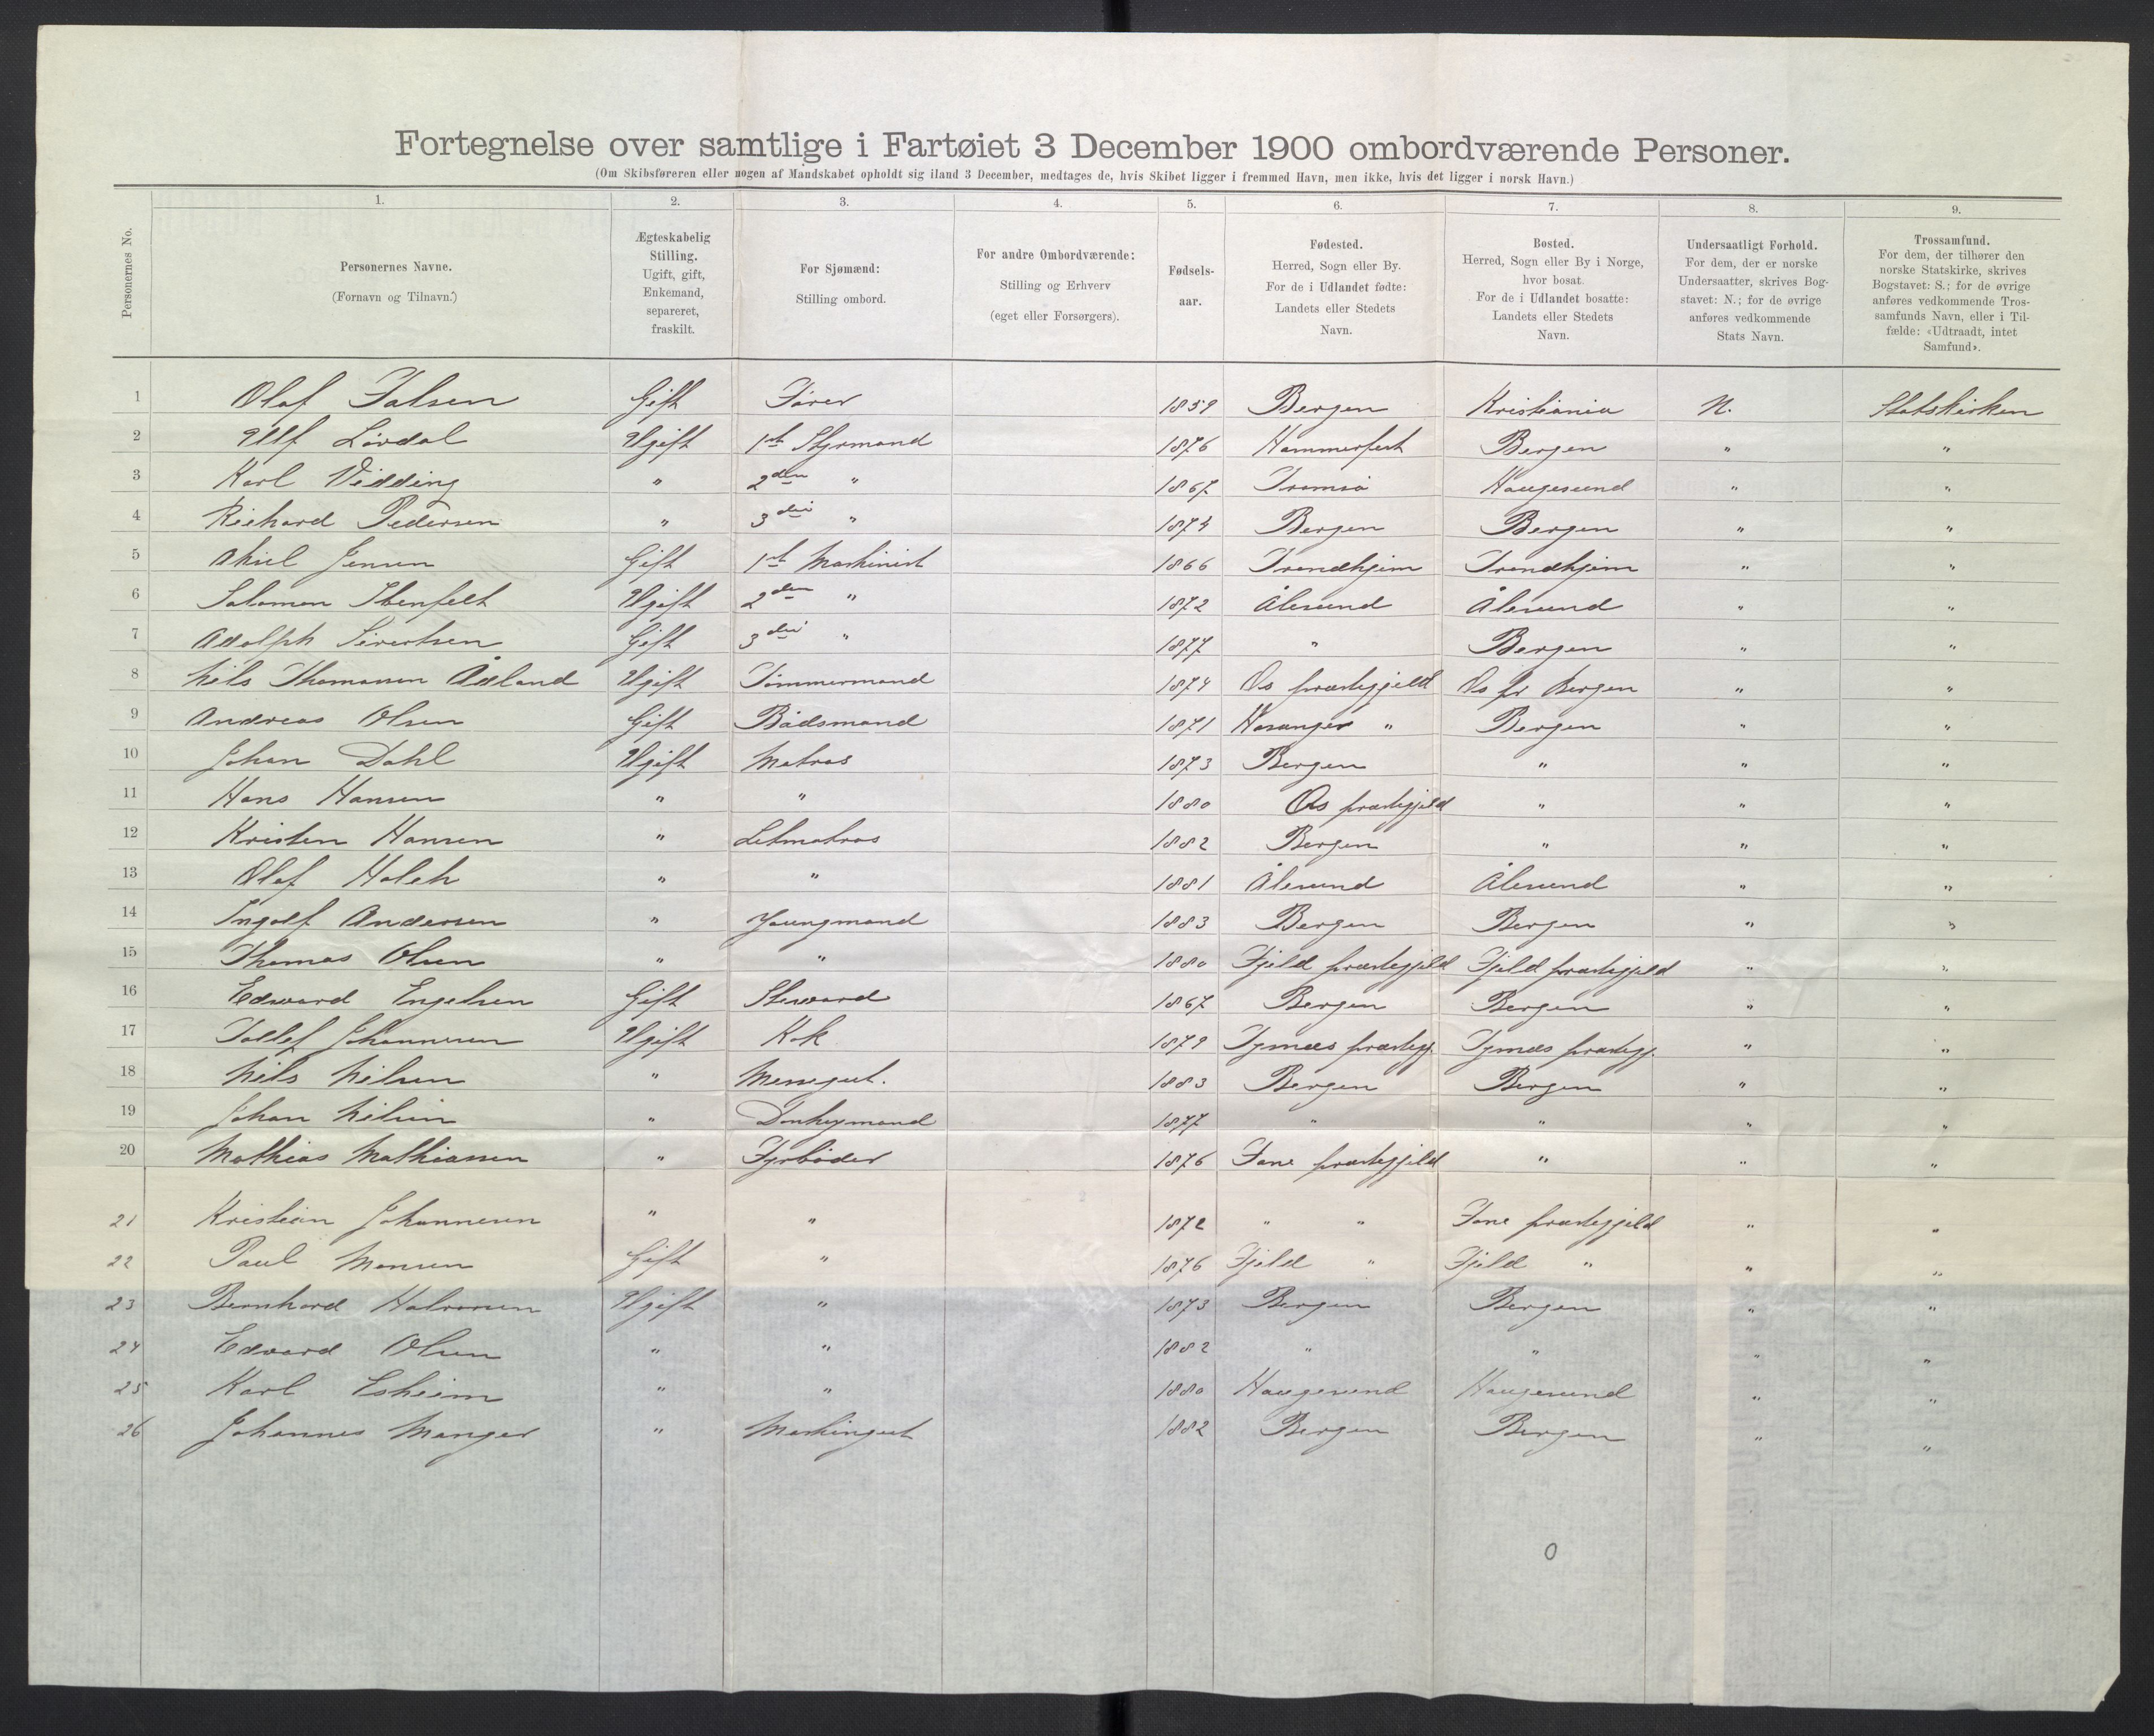 Fortegnelse over samtlige i Fartøiet 3 December 1900 ombordværende Personer.
(Om Skibsføreren eller nogen af Mandskabet opholdt sig iland 3 December, medtages de, hvis Skibet ligger i fremmed Havn, men ikke, hvis det ligger i norsk Havn.)
Personernes No.
1. Personernes Navne. (Fornavn og Tilnavn.)
2. Ægteskabelig Stilling. Ugift, gift, Enkemand, separeret, fraskilt.
3. For Sjømænd: Stilling ombord.
4. For andre Ombordværende: Stilling og Erhverv (eget eller Forsørgers).
5. Fødsels-aar.
6. Fødested. Herred, Sogn eller By. For de i Udlandet fødte: Landets eller Stedets Navn.
7. Bosted. Herred, Sogn eller By i Norge, hvor bosat. For de i Udlandet bosatte: Landets eller Stedets Navn.
8. Undersaatligt Forhold. For dem, der er norske Undersaatter, skrives Bogstavet: N.; for de øvrige anføres vedkommende Stats Navn.
9. Trossamfund. For dem, der tilhører den norske Statskirke, skrives Bogstavet: S.; for de øvrige anføres vedkommende Trossamfunds Navn, eller i Tilfælde: «Udtraadt, intet Samfund».
1 Olaf Falsen Gift Fører 1859 Bergen Kristiania N. Statskirken
2 Ulf Lövdal Ugift 1st Styrmand 1876 Hammerfest Bergen " "
3 Karl Vidding " 2den " 1867 Tromsö Haugesund " "
4 Richard Pedersen " 3die " 1874 Bergen Bergen " "
5 Aksel Jensen Gift 1st Maskinist 1866 Trondhjem Trondhjem " "
6 Salomon Stenfelt Ugift 2den " 1872 Ålesund Ålesund " "
7 Adolph Sivertsen Gift 3die " 1877 " Bergen " "
8 Nils Thomassen Ådland Ugift Tömmermand 1874 Os præstegjeld Os pr Bergen " "
9 Andreas Olsen Gift Bådsmand 1871 Hosanger " Bergen " "
10 Johan Dahl Ugift Matros 1873 Bergen " " "
11 Hans Hansen " " 1880 Os præstegjeld " " "
12 Kristen Hansen " Letmatros 1882 Bergen " " "
13 Olaf Holch " " 1881 Ålesund Ålesund " "
14 Ingolf Andersen " Youngmand 1883 Bergen Bergen " "
15 Thomas Olsen " " 1880 Fjeld præstegjeld Fjeld præstegjeld " "
16 Edward Engelsen Gift Steward 1867 Bergen Bergen " "
17 Tollef Johannesen Ugift Kok 1879 præstegj. præstegj. " "
18 Nils Nilsen " Messegut. 1883 Bergen Bergen " "
19 Johan Nilsen " Donkeymand 1877 " " " "
20 Mathias Mathiassen " Fyrböder 1876 Fane præstegjeld " " "
21 Kristian Johannesen " " 1872 " " Fane præstegjeld " "
22 Paul Monsen Gift " 1876 Fjeld " Fjeld " " "
23 Bernhard Halvorsen Ugift " 1873 Bergen Bergen " "
24 Edvard Olsen " " 1882 " " " "
25 Karl Esheim " " 1880 Haugesund Haugesund " "
26 Johannes Manger " Maskingut 1882 Bergen Bergen " "
0